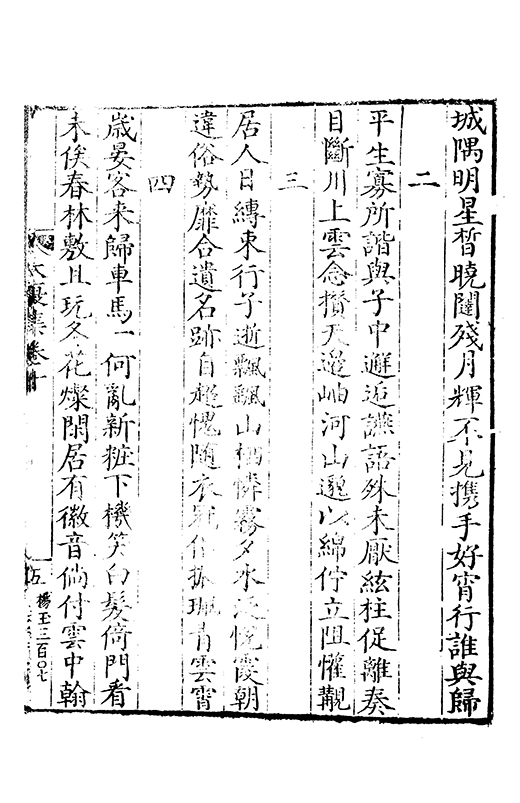 城隅明星皙曉闥殘月輝不見攜手好宵行誰與歸
二
平生寡所諧與子中邂逅讌語殊未厭絃柱促離奏
目斷川上雲念攢天邊岫河山邈以綿佇立阻懽覯
三
居人日縛束行子逝飄飄山栖憐霧夕水泛悅霞朝
違俗勢靡合遺名跡自超愧隨衣振珮青雲霄
四
歲晏客來歸車馬一何亂新粧下機笑白髮倚門看
未俟春林敷且玩冬花燦閑居有徽音倘付雲中翰
集卷十
五
楊玉三百〇七